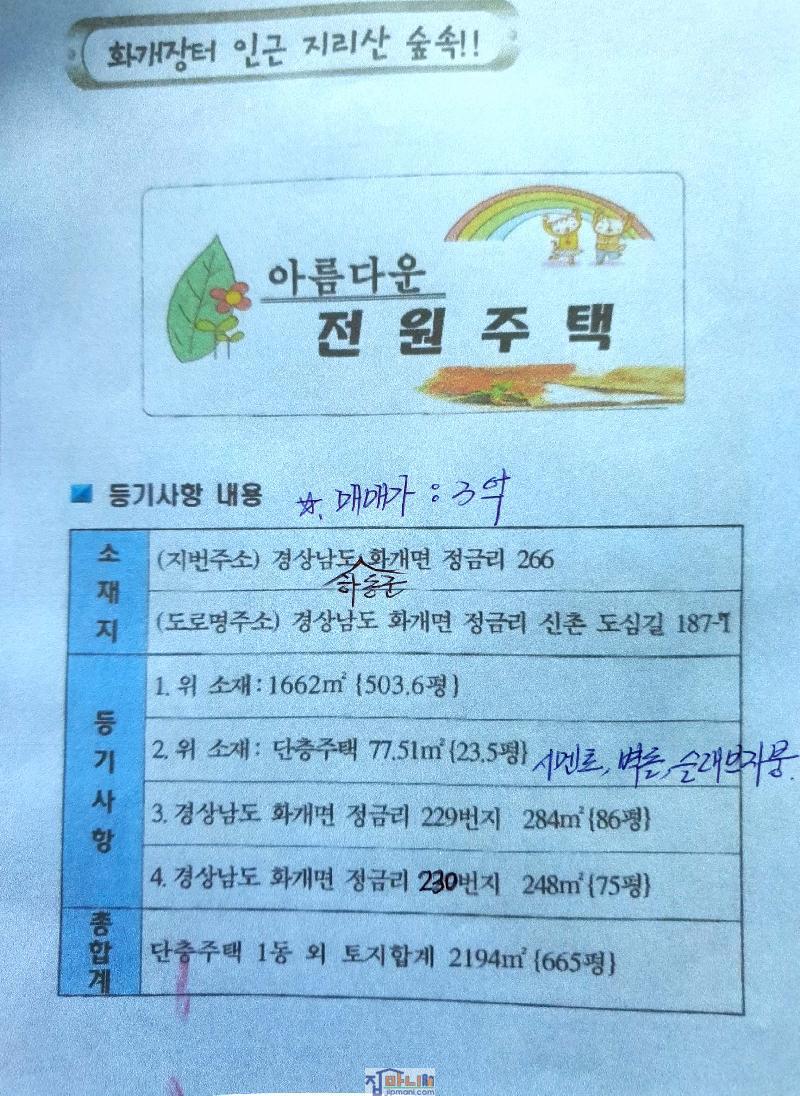 화개장터 인근 지리산 숲속!!
아름다운
전원주택
등기사항 내용 ☆. 매매가 : 3억
소재지
(지번주소) 경상남도 화개면 정금리 266
하동군
(도로명주소) 경상남도 화개면 정금리 신촌 도심길 187-7
등기사항
1. 위 소재: 1662㎡ {503.6평}
2. 위 소재: 단층주택 77.51㎡{23.5평} 시멘트, 벽돌, 슬래브지붕.
3. 경상남도 화개면 정금리 229번지 284㎡{86평}
4. 경상남도 화개면 정금리 230번지 248㎡{75평}
총합계
단층주택 1동 외 토지합계 2194㎡{665평}
집마니아
jipmani.com